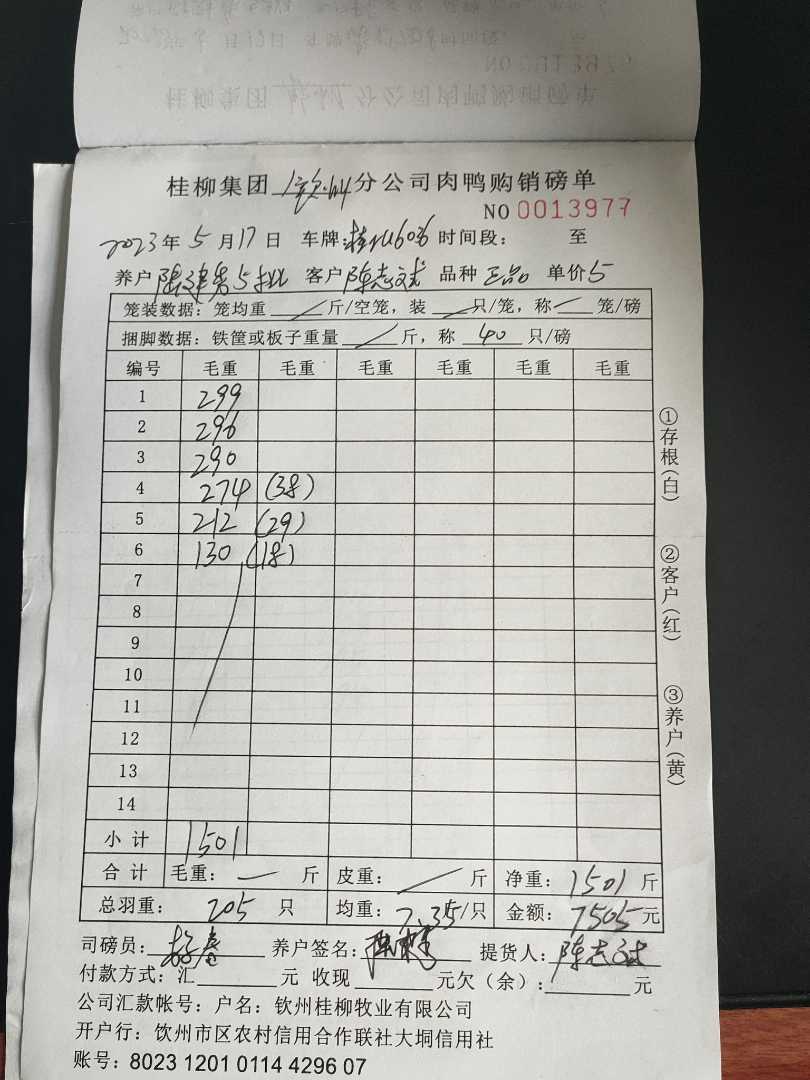 桂柳集团 钦州 分公司肉鸭购销磅单
NO 0013977
2023 年 5 月 17 日 车牌: 时间段: 至
养户 客户 陈志斌 品种 正品 单价 5
笼装数据: 笼均重 / 斤/空笼, 装 / 只/笼, 称 / 笼/磅
捆脚数据: 铁筐或板子重量 / 斤, 称 40 只/磅
编号 毛重 毛重 毛重 毛重 毛重 毛重
1 299
2 296
3 290
4 274 (38)
5 212 (29)
6 130 (18)
7
8
9
10
11
12
13
14
小计 1501
合计 毛重: — 斤 皮重: / 斤 净重: 1501 斤
总羽重: 205 只 均重: 7.35/只 金额: 7505 元
司磅员: 养户签名: 提货人: 陈志斌
付款方式: 汇 元 收现 元欠(余): 元
公司汇款帐号: 户名: 钦州桂柳牧业有限公司
开户行: 饮州市区农村信用合作联社大垌信用社
账号: 8023 1201 0114 4296 07
①存根(白)
②客户(红)
③养户(黄)